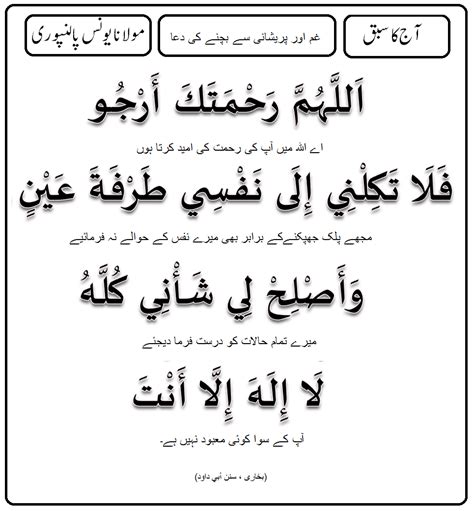 آج کا سبق
غم اور پریشانی سے بچنے کی دعا
مولانا یونس پالنپوری
اَللَّهُمَّ رَحْمَتَكَ أَرْجُو
اے اللہ میں آپ کی رحمت کی امید کرتا ہوں
فَلَا تَكِلْنِي إِلَى نَفْسِي طَرْفَةَ عَيْنٍ
مجھے پلک جھپکنےکے برابر بھی میرے نفس کے حوالے نہ فرمائیے
وَأَصْلِحْ لِي شَأْنِي كُلَّهُ
میرے تمام حالات کو درست فرما دیجئے
لَا إِلَهَ إِلَّا أَنْتَ
آپ کے سوا کوئی معبود نہیں ہے۔
(بخاری ، سنن أبي داود)